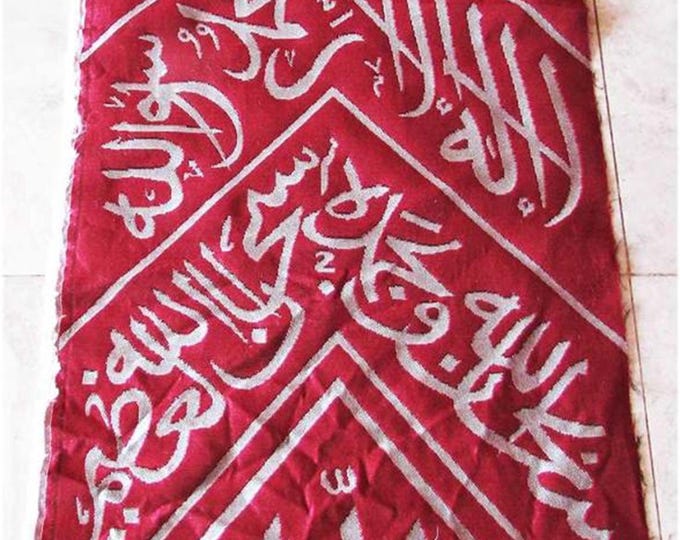 لا إله الا الله محمد رسول الله
سبحان الله وبحمده سبحان الله العظيم